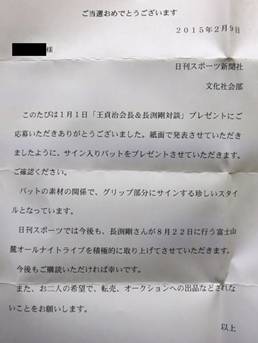 ご当選おめでとうございます
２０１５年２月９日
様
日刊スポーツ新聞社
文化社会部
このたびは１月１日「王貞治会長＆長渕剛対談」プレゼントにご
応募いただきありがとうございました。紙面で発表させていただき
ましたように、サイン入りバットをプレゼントさせていただきます。
ご確認ください。
バットの素材の関係で、グリップ部分にサインする珍しいスタイ
ルとなっています。
日刊スポーツでは今後も、長渕剛さんが８月２２日に行う富士山
麓オールナイトライブを積極的に取り上げてさせていただきます。
今後もご購読いただければ幸いです。
また、お二人の希望で、転売、オークションへの出品などされな
いことをお願いします。
以上